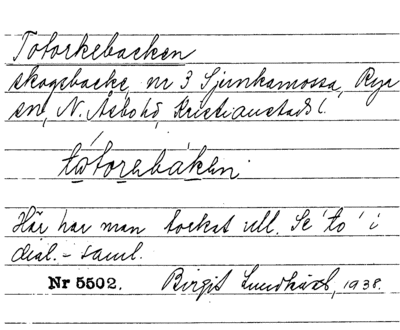 Totorkebacken
skogsbacke, nr 3 Sjunkamossa, Rya
sn, N. Åsbo hd, Kristianstads l.
Här har man torkat ull. Se 'to' i
dial.-saml.
Nr 5502. Birgit 1938.